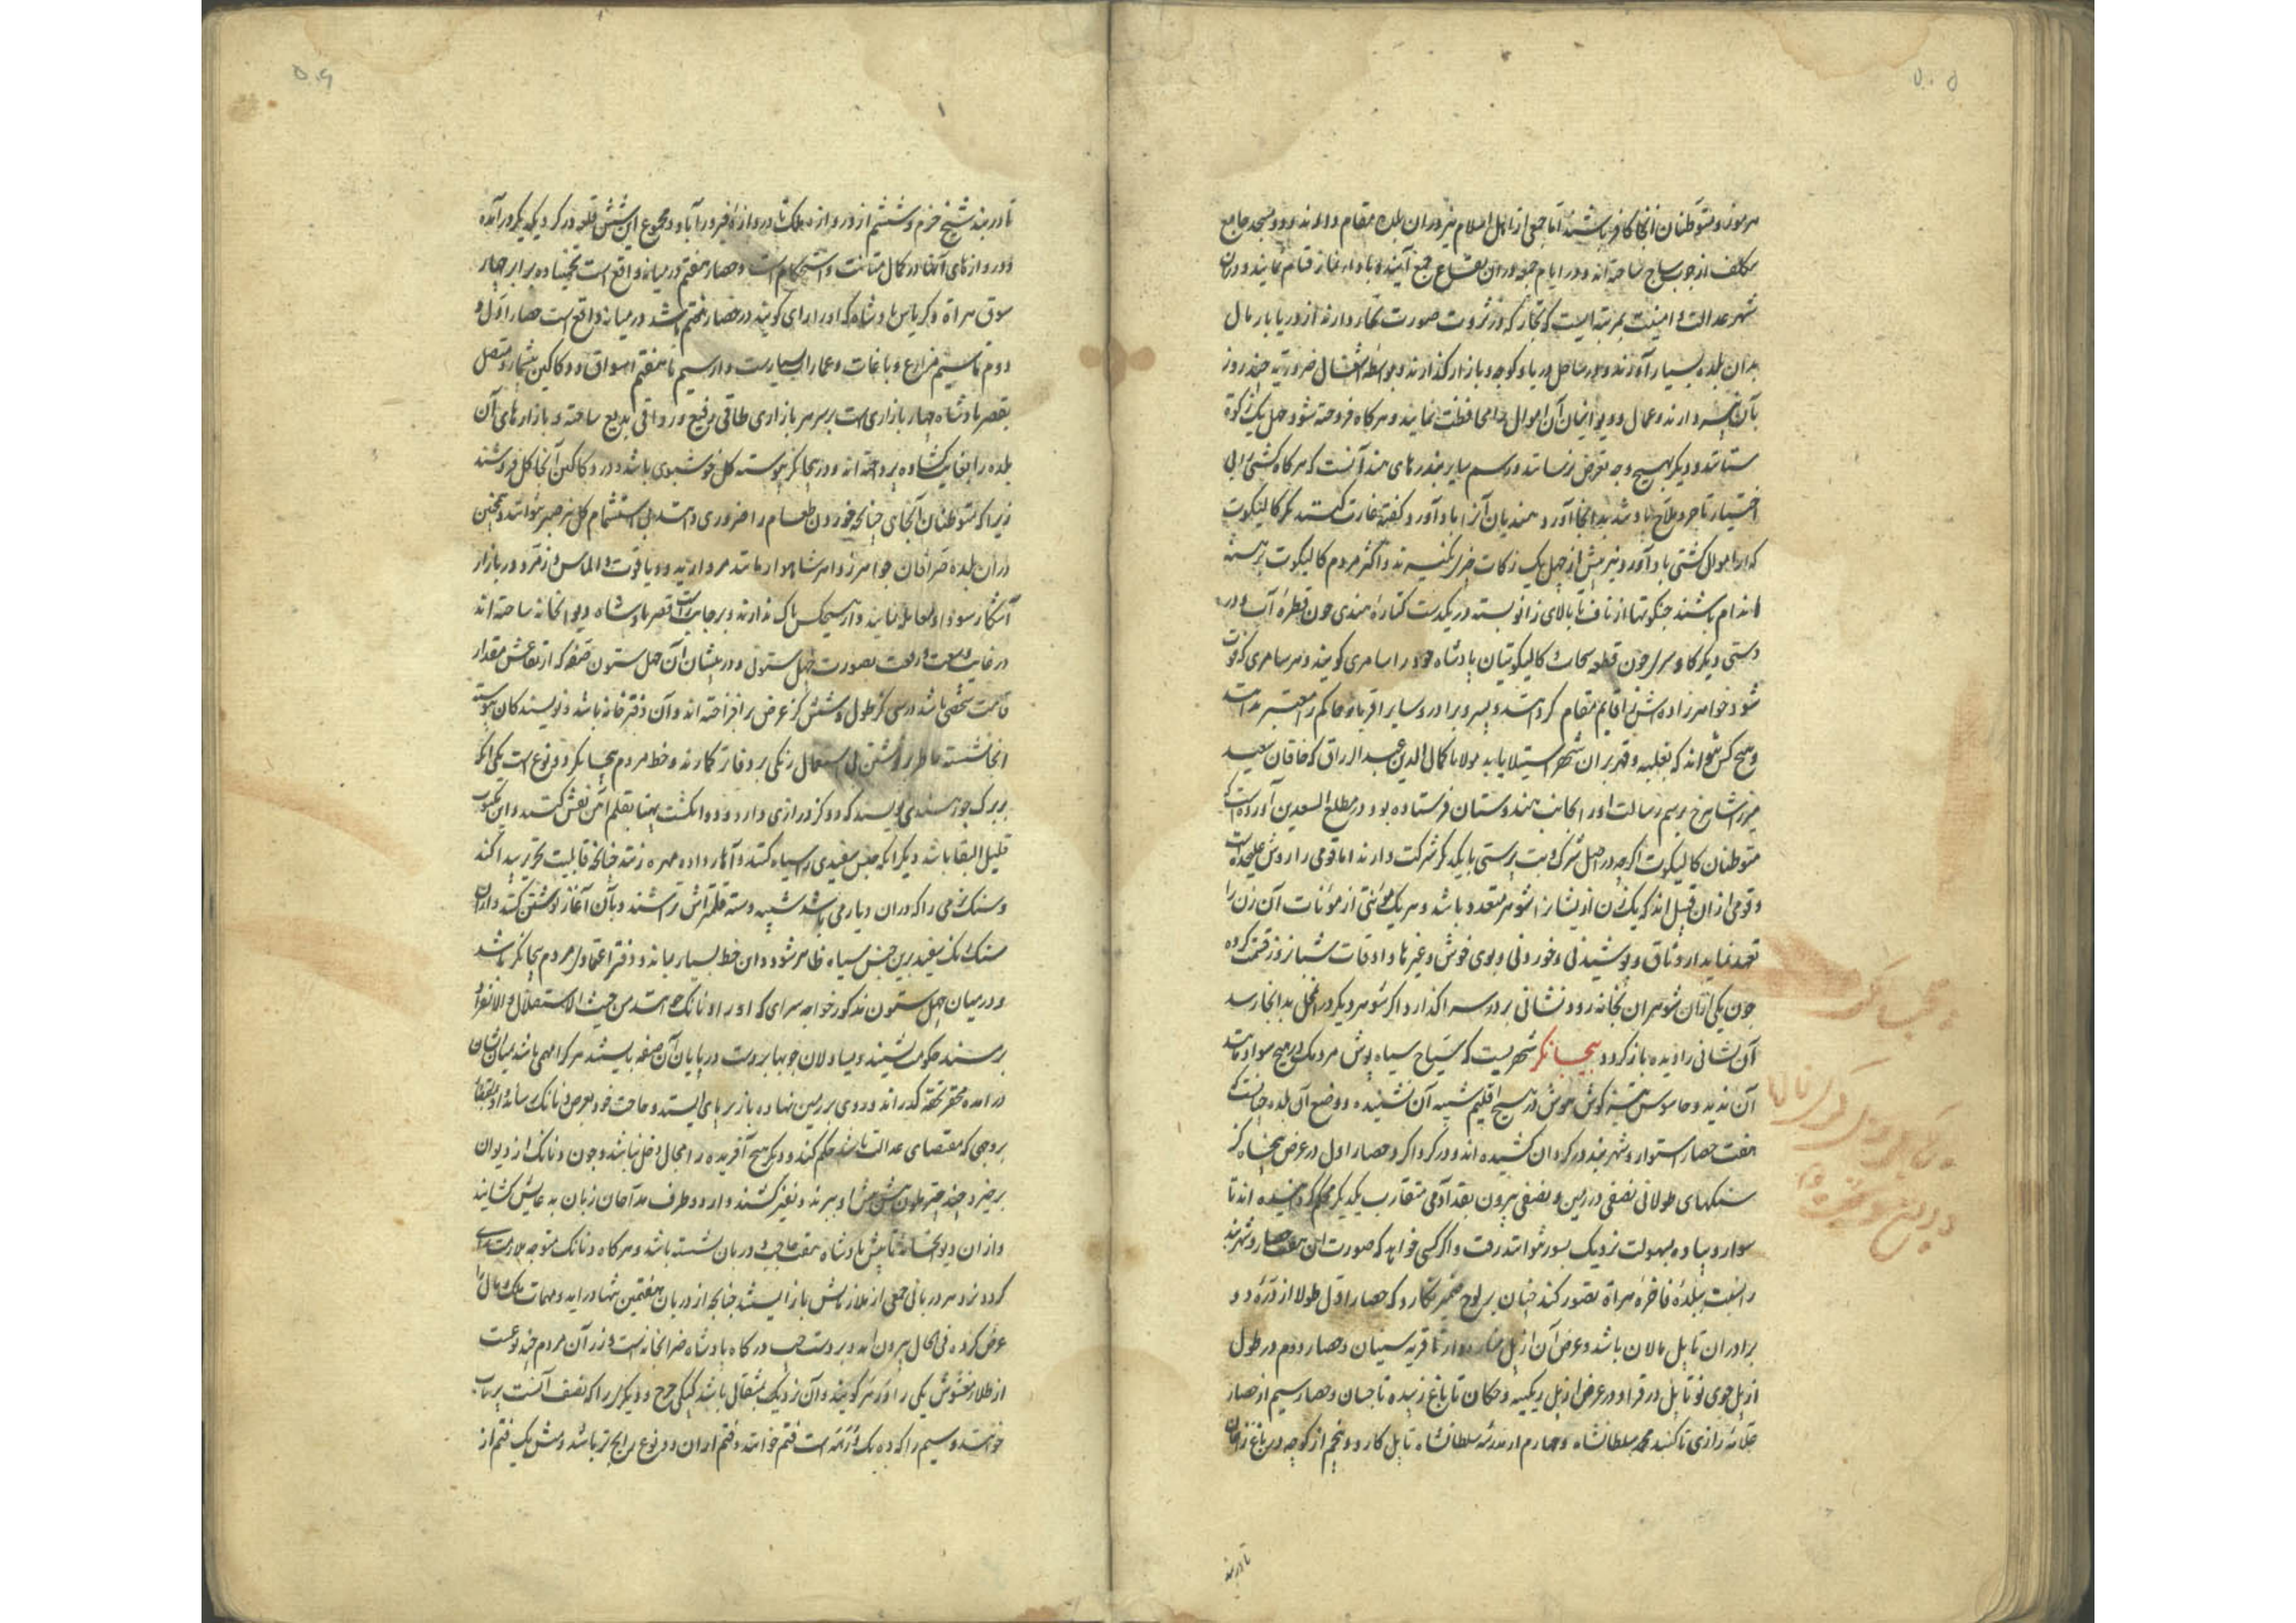 ۵۰۵
هرموز و متوطنان آنجا کافر باشند اما جمعی از اهل اسلام نیز در آن بلده مقام دارند و دو مسجد جامع
شهر عدالت و امنیت بمرتبه ایست که تجار که در ثروت صورت دارند از دریا بار مال
بدان بلده بسیار آورند و در ساحل دریا و کوچه و بازار گذارند و بواسطه اشتغال ضروریه چند روز
و عمال و دیوانیان آن اموال را محافظت نمایند و هرگاه فروخته شود چهل یک زکوة
ستانند و دیگر بهیچ وجه تعرض نرسانند و رسم سایر بندرهای هند آنست که هرگاه کشتی بی
اختیار تاجر و ملاح باد بدانجا آورد هندیان آنرا باد آورد گفته غارت کنند مگر کالیکوت
که از اموال کشتی باد آورد نیز بیش از چهل یک زکات چیزی نگیرند و اکثر مردم کالیکوت برهنه
اندام باشند لنگوتها از ناف تا بالای زانو بسته در یکدست کتاره هندی چون قطره آب و در
دستی دیگر کاو سر چون قطعه سحاب کالیکوتیان پادشاه خود را سامری گویند و هر سامری که فوت
شود خواهرزاده اش را قایم مقام کرده و پسر و برادر و سایر اقربا و حاکم را معتبر ندانند
و هیچ کس نتواند که بغلبه و قهر بر آن شهر استیلا یابد مولانا کمال الدین عبد الرزاق که خاقان سعید
میرزا شاهرخ برسم رسالت او را بجانب هندوستان فرستاده بود در مطلع السعدین آورده است که
متوطنان کالیکوت اگرچه در اصل شرک و بت پرستی با یکدیگر شرکت دارند اما قومی را روش علیحده است
و قومی از آن قبیل اند که یک زن از ایشان را شوهر متعدد باشد و هر یک مؤنتی از مؤنات آن زن را
تعهد نماید از وثاق و پوشیدنی و خوردنی و بوی خوش و غیرها و اوقات شبانروز قسمت کرده
چون یکی از آن شوهران بخانه رود نشانی بر در سرا گذارد اگر شوهر دیگر در آن محل بدانجا رسد
آن نشانی را دیده باز گردد بیجانگر شهریست که سیاح سیاه پوش مردمک در هیچ سواد مانند
آن ندید و جاسوس تیز گوش هوش در هیچ اقلیم شبیه آن نشنیده و وضع آن بلده چنانست که
هفت حصار استوار و شهربند در گرد آن کشیده اند و در گرداگرد حصار اول در عرض پنجاه گز
سنگهای طولانی نصفی در زمین و نصفی بیرون بقد آدمی متقارب یکدیگر محکم گردانیده اند تا
سوار و پیاده بسهولت نزدیک بسور نتوانند رفت و اگر کسی خواهد که صورت این هفت حصار و شهربند
را نسبت ببلده فاخره هراة تصور کند چنان بر لوح ضمیر نگارد که حصار اول طولا از دره دو
برادران تا پل مالان باشد و عرض آن از پل تا قریه سینان و حصار دوم در طول
از پل جوی نو تا پل درقراو و در عرض از پل ریکینه و جکان تا باغ زبیده تا جسان و حصار سیم از حصار
رازی تا گنبد محمد سلطانشاه و چهارم از مدرسه سلطانشاه تا پل کارد و پنجم از کوچه در باغ زاغان
تا در بند
بیجانگر
۵۰۶
تا در بند شیخ خرم و ششم از دروازه ملک تا دروازه فیروزآباد و مجموع این شش قلعه در گرد یکدیگر درآمده
و دروازهای آنها در کمال متانت و استحکام است و حصار هفتم در میانه واقع است تخمینا ده برابر چهار
سوق هراة و کریاس پادشاه که او را رای گویند در حصار هفتم باشد در میانه واقع است حصار اول و
دوم تا سیم مزارع و باغات و عمارات بسیارست و از سیم تا هفتم اسواق و دکاکین بیشمار و متصل
بقصر پادشاه چهار بازاری است بر سر هر بازاری طاقی رفیع و رواقی بدیع ساخته و بازارهای آن
بلده را بغایت گشاده پرداخته اند و در بیجانگر پیوسته گل خوشبوی باشد و در دکاکین آنجا گل فروشند
زیرا که متوطنان آنجای چنانچه خوردن طعام را ضروری دانند بی استشمام گل نیز صبر نتوانند و همچنین
در آن بلده صرافان جواهر زواهر شاهوار مانند مروارید و یاقوت و الماس و زمرد در بازار
آشکار سودا و معامله نمایند و از هیچکس باک ندارند و بر جانب راست قصر پادشاه دیوانخانه ساخته اند
در غایت وسعت و رفعت بصورت چهل ستون و در پیشان آن چهل ستون صفه که ارتفاعش مقدار
قامت شخصی باشد در سی گز طول و شش گز عرض برافراخته اند و آن دفترخانه باشد و نویسندگان پیوسته
آنجا نشسته بر دفاتر نگارند و خط مردم بیجانگر دو نوع است یکی آنکه
بر برگ جوز هندی نویسند که دو گز درازی دارد و دو انگشت پهنا بقلم آهن نقش کنند و این مکتوب
قلیل البقا باشد دیگر آنکه جنس سفیدی را سیاه کنند و آهار داده مهره زنند چنانچه قابلیت تحریر پیدا کند
و سنگ نرمی را که در آن دیار می باشد شبیه دسته قلمتراش تراشند و بآن آغاز نوشتن کنند و از آن
سنگ رنگ سفید برین جنس سیاه ظاهر شود و این خط بسیار بماند و دفتر اعتماد مردم بیجانگر باشد
و در میان چهل ستون مذکور خواجه سرای که او را دنانک خوانند من حیث الاستقلال و الانفراد
بر مسند حکومت نشیند و یساولان چوبها بر دست در پایان آن صفه بایستند هر که را مهمی باشد میان ایشان
درآمده محقر تحفه گذراند و روی بر زمین نهاده باز بر پای ایستد و حاجت خود بعرض دنانک رساند
بر وجهی که مقتضای عدالت باشد حکم کند و دیگر هیچ آفریده را مجال دخل نباشد و چون دنانک از دیوان
برخیزد چند چتر ملون پیش پیش او ببرند و نفیر کشند و از دو طرف مداحان زبان بدعایش گشایند
و از آن دیوانخانه تا پیش پادشاه هفت حاجب و دربان نشسته باشد و هرگاه دنانک متوجه ملازمت رای
گردد نزد هر دربانی جمعی از ملازمانش باز ایستند چنانچه از دربان هفتمین تنها درآید و مهمات ملک و مال را
عرض کرده فی الحال بیرون آید و بر دست چپ درگاه پادشاه ضرابخانه است و زر آن مردم چند نوعست
از طلای مغشوش یکی را ورهه گویند و آن نزدیک بمثقال باشد و دیگر را که نصف آنست پرتاب
خوانند و سیم را که ده یک ورهه است فنم خوانند و فنم از آن دو نوع رایج تر باشد و شش یک فنم از